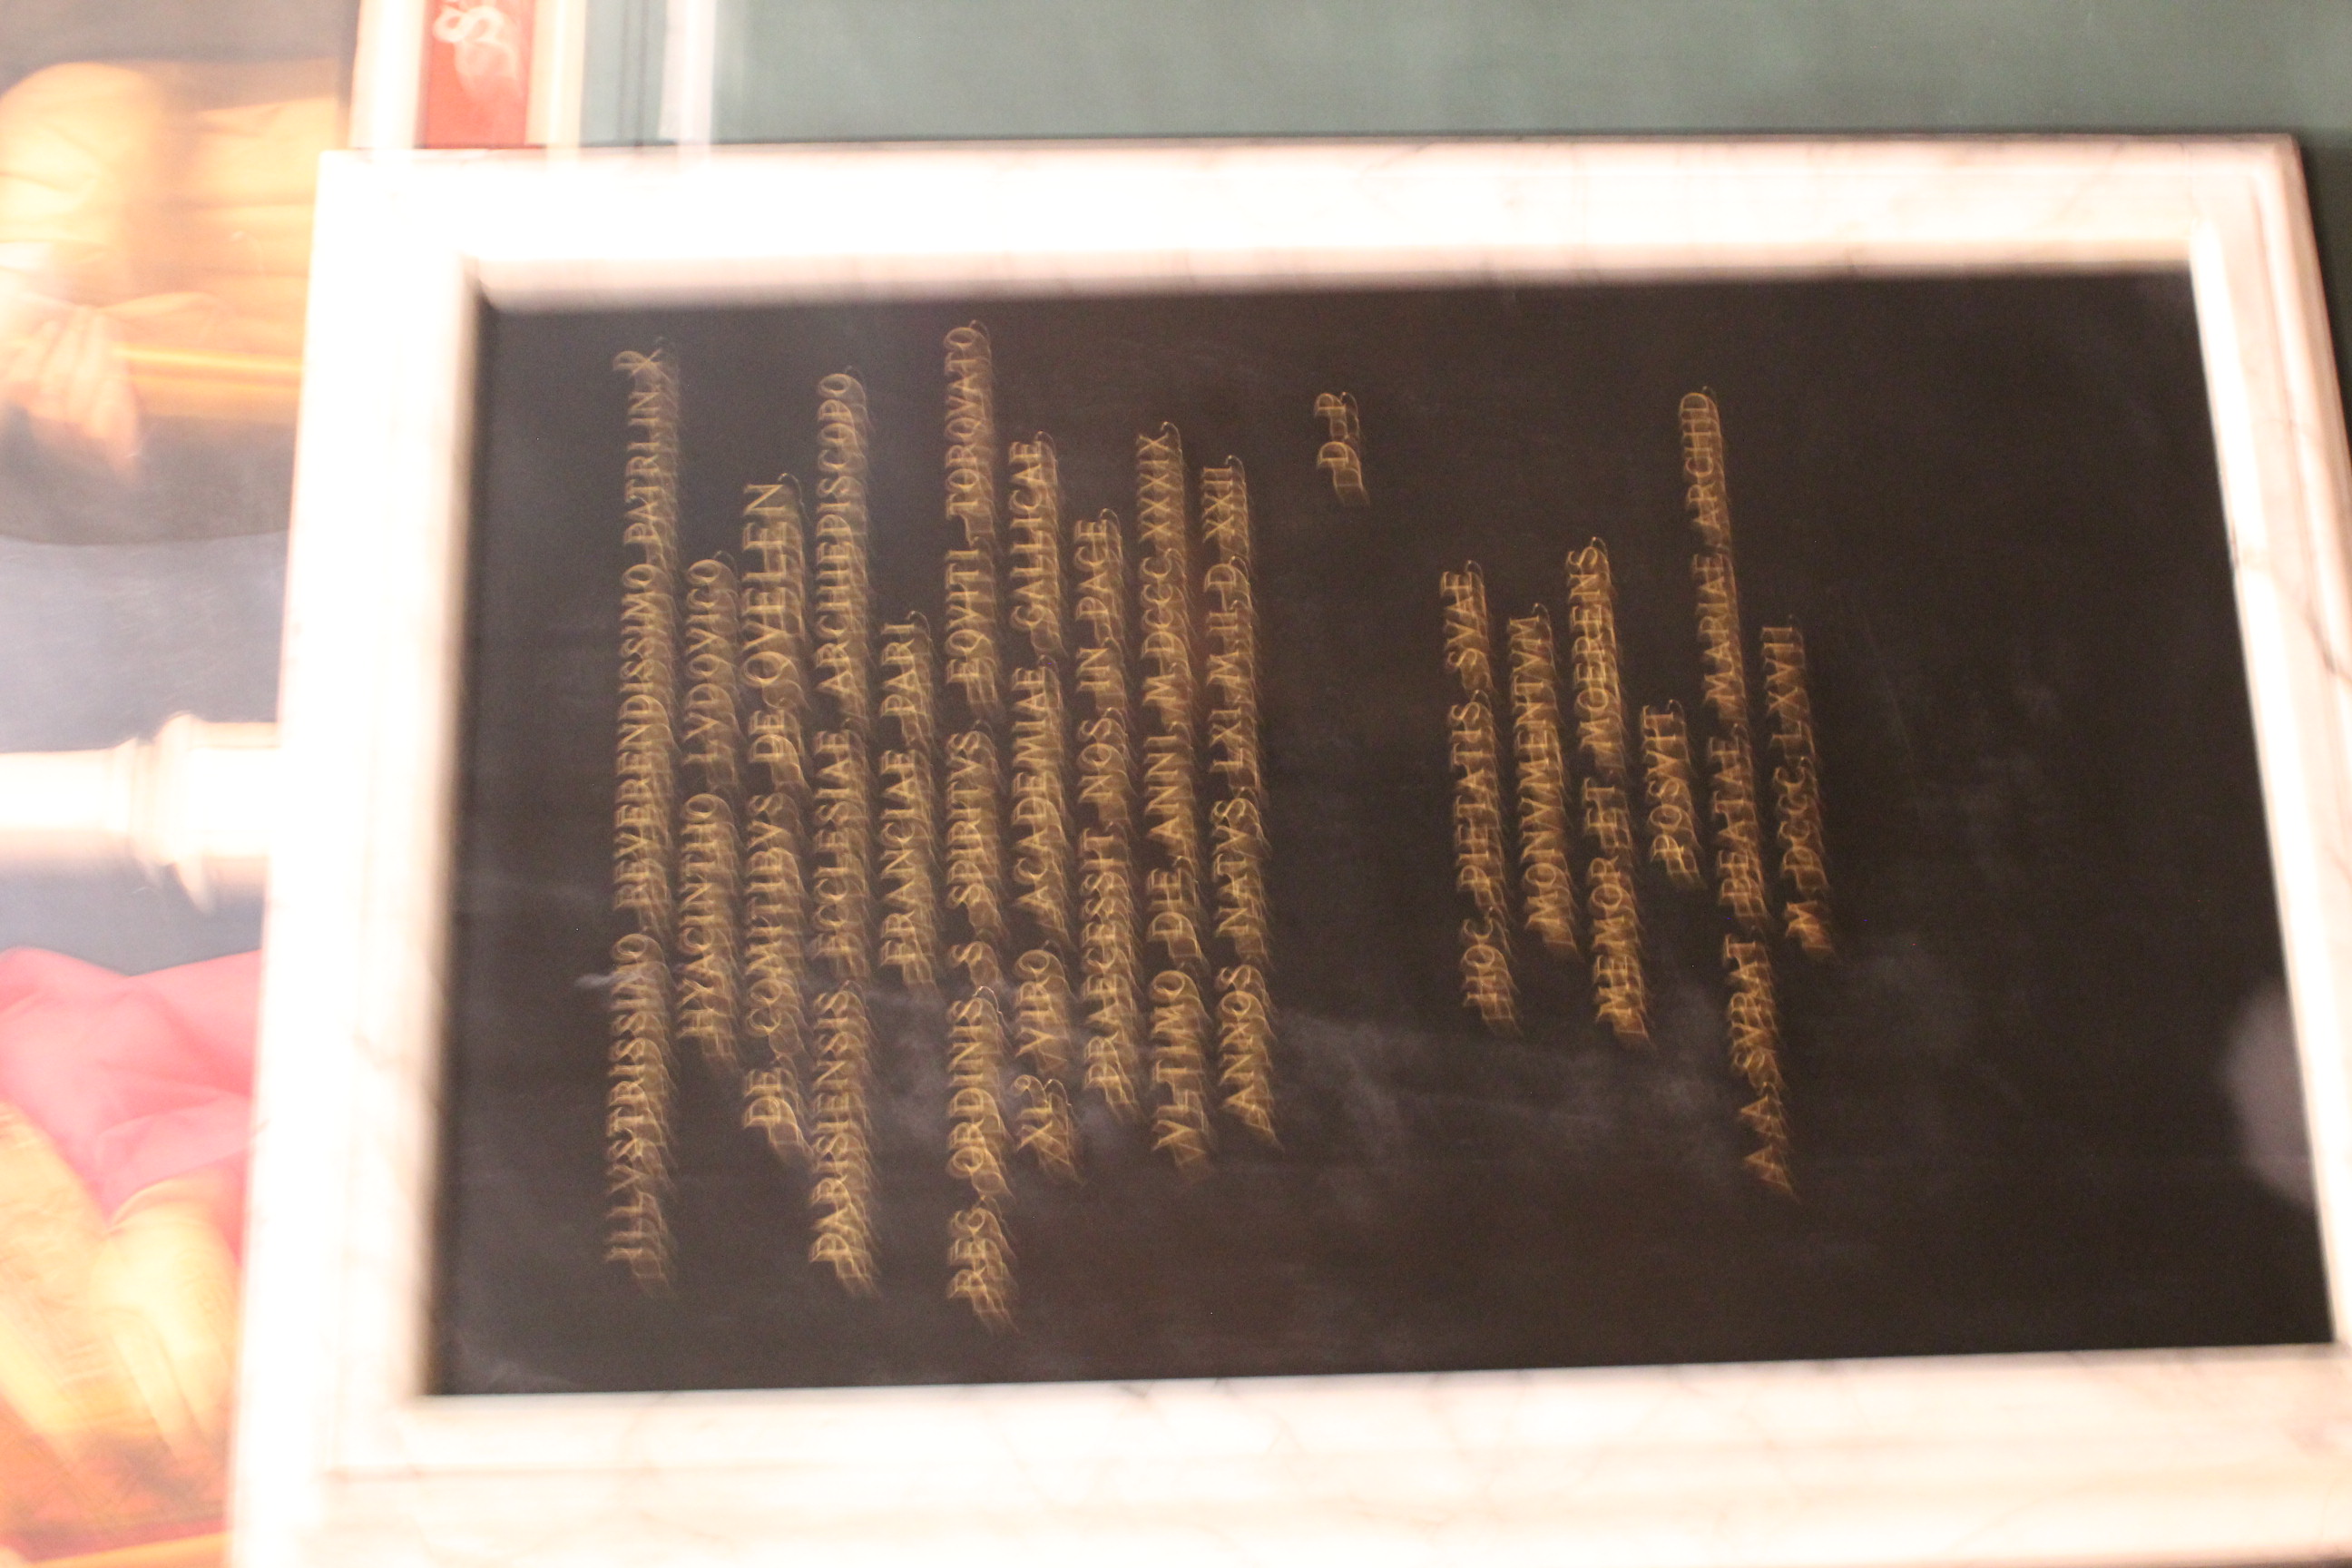 ILLVSTRISSIMO REVERENDISSIMO PATRI IN X
HYACINTHO LVDOVICO
DE COMITIBVS DE QVELEN
PARISIENSIS ECCLESIAE ARCHIEPISCOPO
FRANCIAE PARI
REG. ORDINIS S SPIRITVS EQVITI TORQVATO
XL VIRO ACADEMIAE GALLICAE
PRAECESSIT NOS IN PACE
VLTIMO DIE ANNI M DCCC XXXIX
ANNOS NATVS LXI M II D XXII
D P
HOC PIETATIS SVAE
MONVMENTVM
MEMOR ET MOERENS
POSVIT
A A SVRAT BEATAE MARIAE ARCHID
M DCCC LXVII